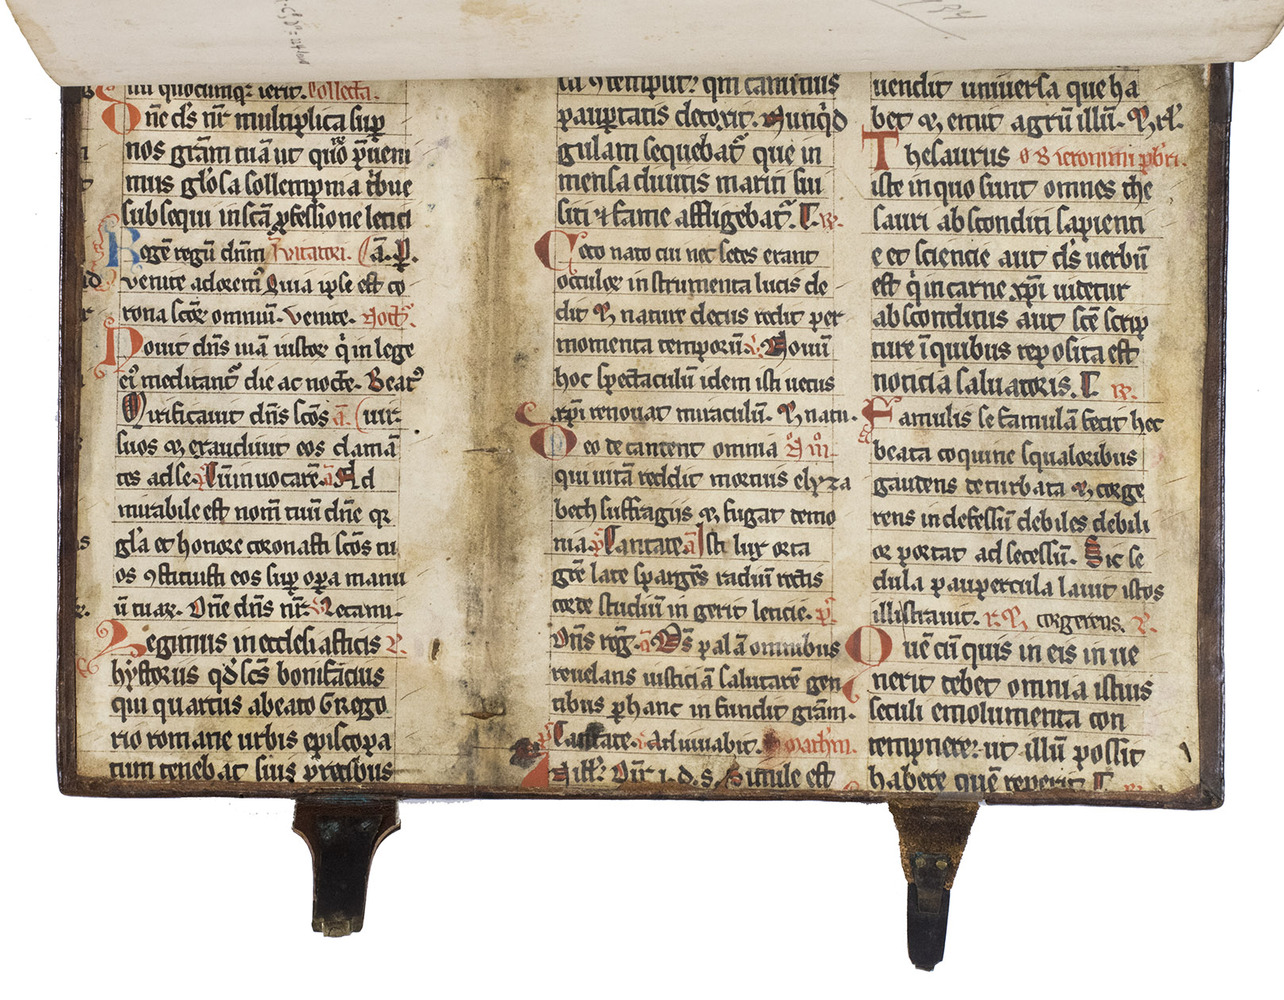 uu quocumqz ierit. Collecta.
Dn̄e d̄s nr̄ multiplica sup̄
nos grām tuā ut quoꝝ p̄ueni
mus glōsa sollempnia tͥbue
subsequi in sc̄a ꝓfessione letici
Regē regū dn̄m Inuitatori. a.
venite adorem⁹ Quia ipse est co
rona sc̄oꝝ omniū. Venite. Noct⁹.
Nouit dn̄s uiā iustoꝝ q̇ in lege
ei⁹ meditant᷑ die ac nocte. Beat⁹
Mirificauit dn̄s sc̄os a. uir
suos et exaudiuit eos clamā
tes ad se. Cū inuocarē Ad
mirabile est nom̄ tuū dn̄e qꝛ
gl̄a et honore coronasti sc̄os tu
os ꝯstituisti eos sup̄ oꝑa manu
ū tuaꝝ. Dn̄e dn̄s nr̄ Letami.
Legimus in ecclesiasticis R.
hystoriis qd̄ sc̄s bonifacius
qui quartus a beato Grego
rio romane urbis episcopa
tum tenebat suis p̄cibus
paup̄tatis decoxit.
gulam sequebat᷑ que in
mensa diuitis mariti sui
siti et fame affligebat᷑. T. R.
Ceco nato cui nec sedes erant
oculoꝝ instrumenta lucis de
dit R. nature decus redit per
momenta temporū. V. Nouū
hoc spectaculū idem isti uetus
xp̄i renouat miraculū. R. natu.
Deo decantent omnia
qui uitā reddit mortuis elyza
beth suffragiis et fugat demo
nia. p̄ Cantate. a Isti lux orta
gr̄e late spargēs radiū rectis
corde studiū in gerit leticie. p̄
Dn̄s reḡ. a D̄s palā omnibus
reuelans iusticiā salutarē gen
tibus per hanc infundit grām.
Cantate. Adiuuabit.
Diff⁹. Dn̄r 1. d. s. Simile est
uendit uniuersa que ha
bet et emit agrū illū. R. rl̄.
Thesaurus o B ieronimi p̄br̄i.
iste in quo sunt omnes the
sauri absconditi sapienti
e et sciencie aut d̄s uerbū
est q̇ in carne xp̄i uidetur
absconditus aut sc̄e scrip
ture ī quibus reposita est
noticia saluatoris. T R.
Famulis se famulā fecit hec
beata coquine squaloribus
gaudens deturbata et corge
rens indefessū debiles debili
oꝝ portat ad secessū. Sic se
dula paupercula lauit istos
illistrauit. R. corgerens.
Quē cū quis in eis inue
nerit debet omnia istius
seculi emolumenta con
tempnere: ut illū possit
habere quē reperit T